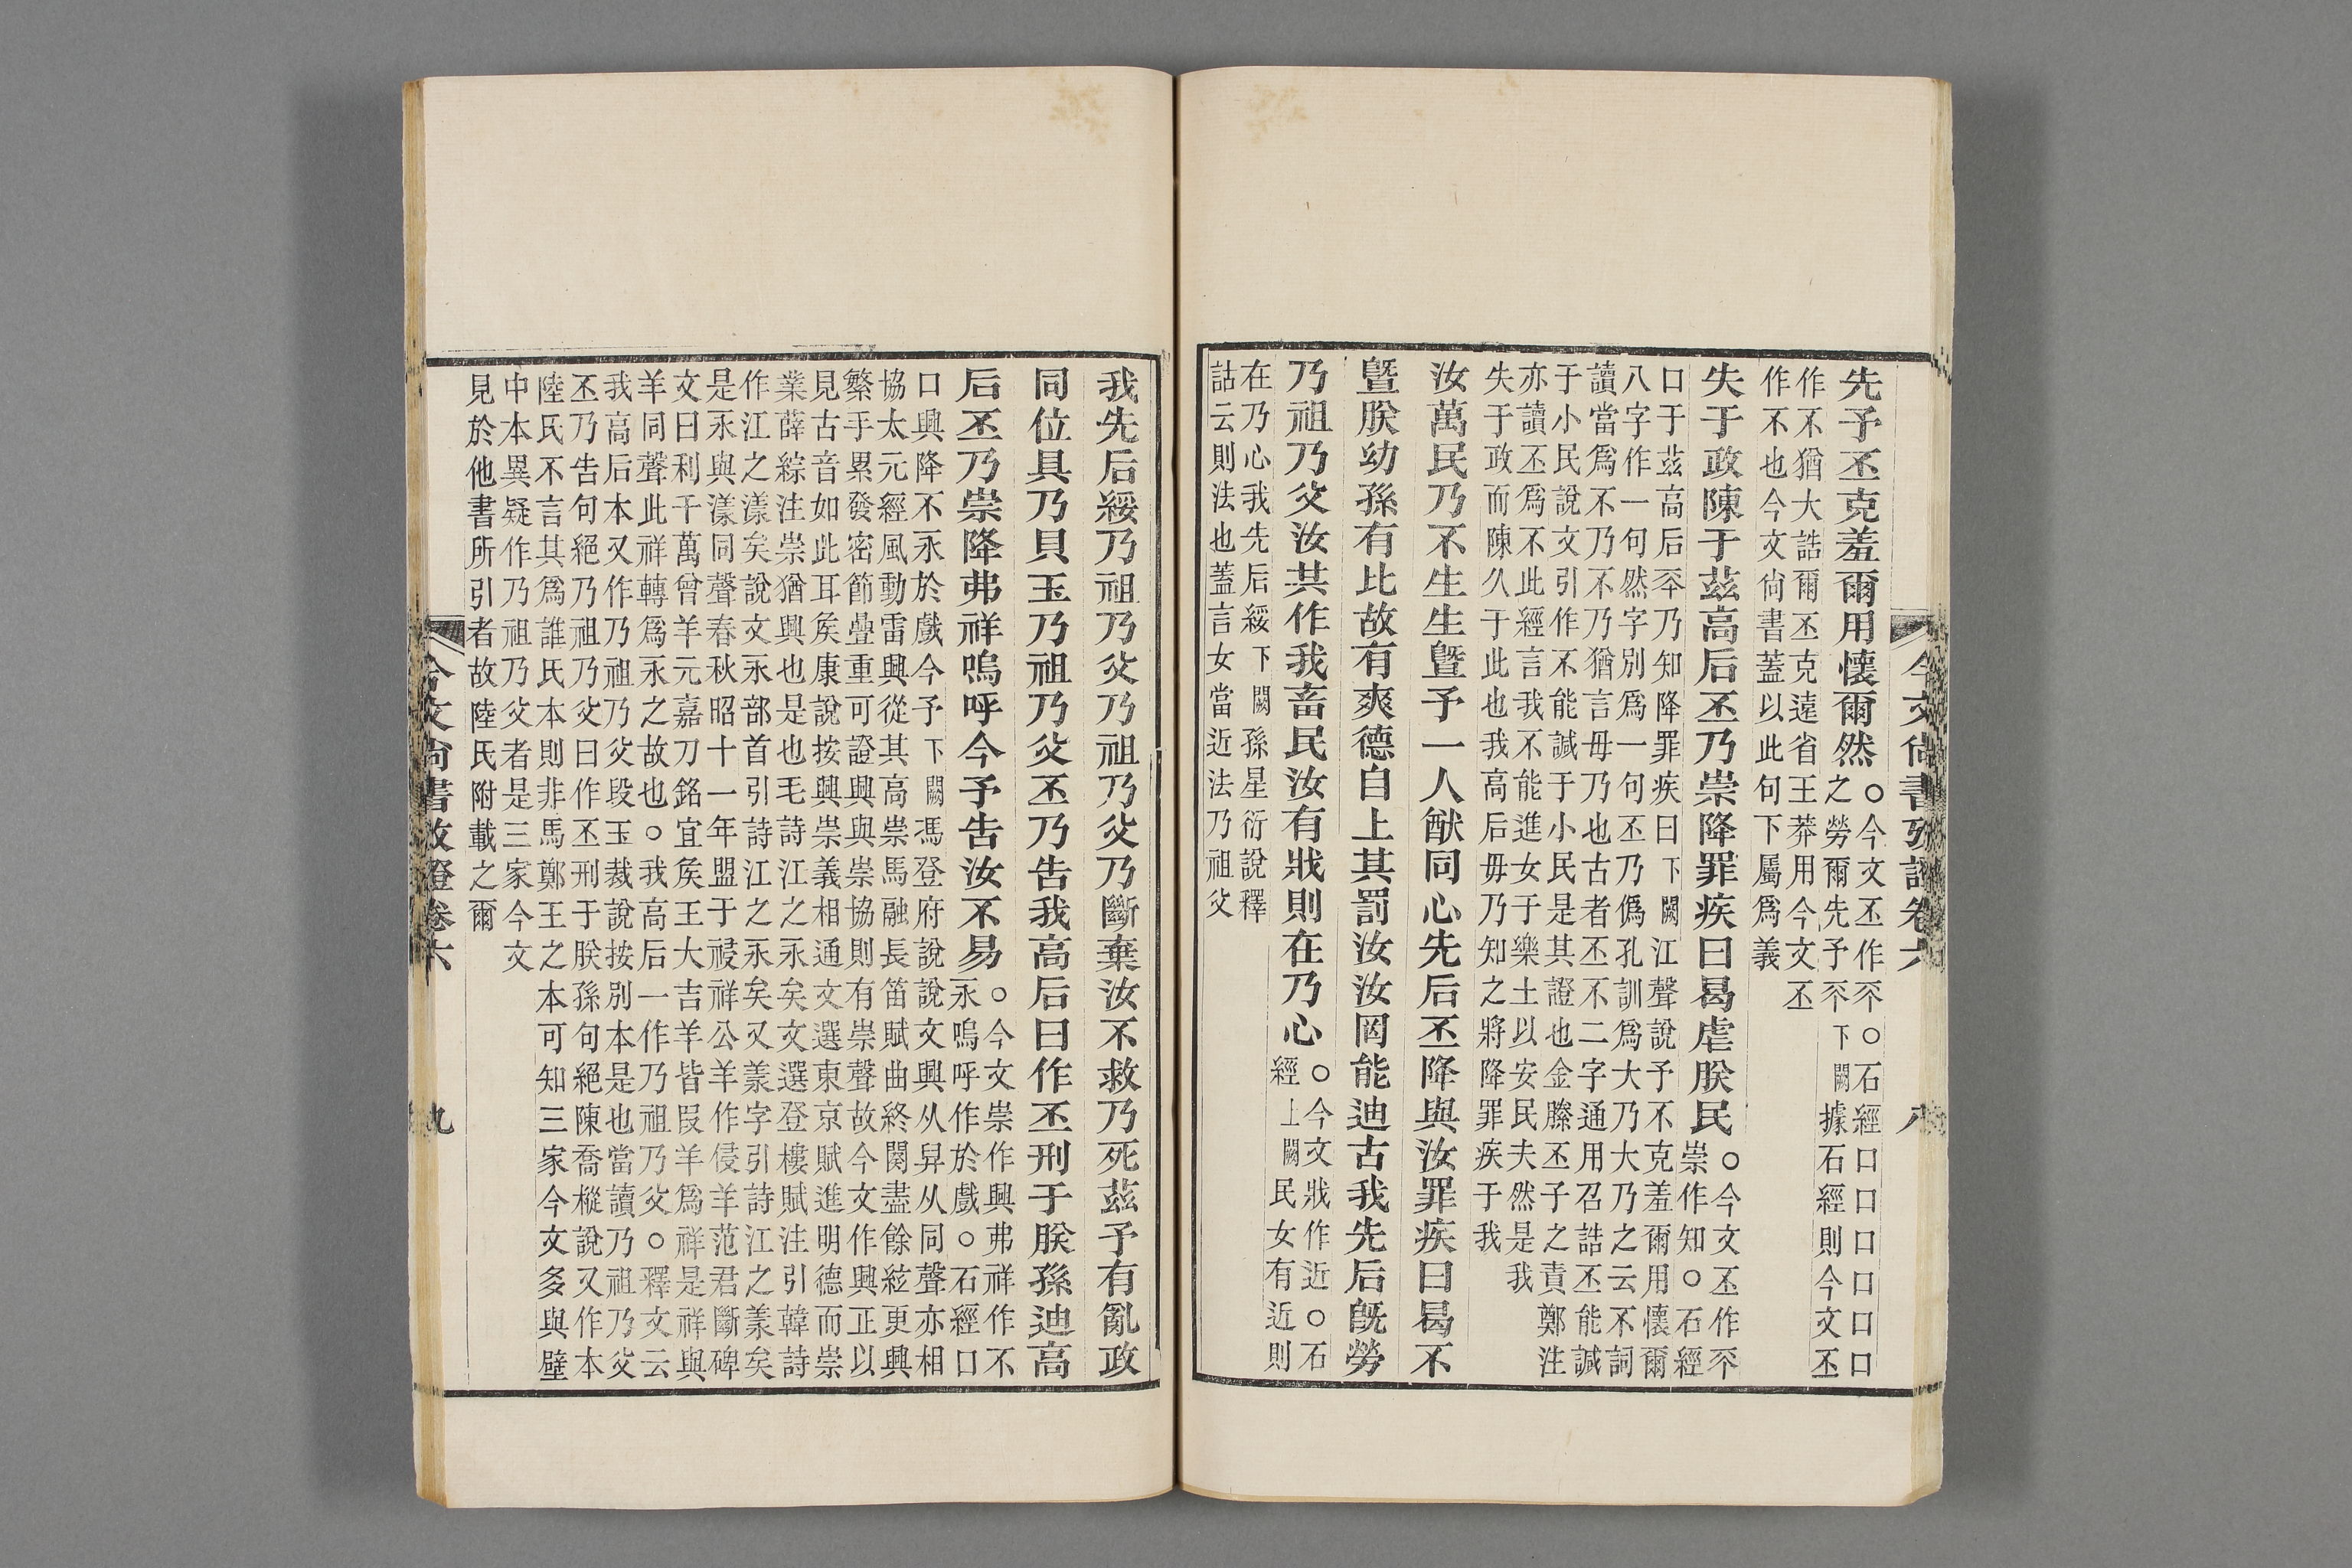 今文尚書攷證卷六
八
先予丕克羞爾用懷爾然○今文丕作㔻○石經口口口口口
之勞爾先予㔻下闕據石經則今文丕
作不猶大誥爾丕克遠省王莽用今文丕
作不也今文尚書蓋以此句下屬爲義
失于政陳于茲高后丕乃崇降罪疾曰曷虐朕民○今文丕作㔻
崇作知○石經
口于茲高后㔻乃知降罪疾曰下闕江聲說予不克羞爾用懷爾
八字作一句然字別爲一句丕乃僞孔訓爲大乃大乃之云不詞
讀當爲不乃不乃猶言毋乃也古者丕不二字通用召誥丕能諴
于小民說文引作不能諴于小民是其證也金縢丕子之責鄭注
亦讀丕爲不此經言我不能進女于樂土以安民夫然是我
失于政而陳久于此也我高后毋乃知之將降罪疾于我
汝萬民乃不生生曁予一人猷同心先后丕降與汝罪疾曰曷不
曁朕幼孫有比故有爽德自上其罰汝汝罔能迪古我先后旣勞
乃祖乃父汝共作我畜民汝有戕則在乃心○今文戕作近○石
經上闕民女有近則
在乃心我先后綏下闕孫星衍說釋
詁云則法也蓋言女當近法乃祖父
我先后綏乃祖乃父乃祖乃父乃斷棄汝不救乃死茲予有亂政
同位具乃貝玉乃祖乃父丕乃告我高后曰作丕刑于朕孫迪高
后丕乃崇降弗祥嗚呼今予告汝不易○今文崇作興弗祥作不
永嗚呼作於戲○石經口
口興降不永於戲今予下闕馮登府說說文興从舁从同聲亦相
協太元經風動雷興從其高崇馬融長笛賦曲終闋盡餘絃更興
繁手累發密節疊重可證興與崇協則有崇聲故今文作興正以
見古音如此耳矦康說按興崇義相通文選東京賦進明德而崇
業薛綜注崇猶興也是也毛詩江之永矣文選登樓賦注引韓詩
作江之漾矣說文永部首引詩江之永矣又羕字引詩江之羕矣
是永與漾同聲春秋昭十一年盟于祲祥公羊作侵羊范君斷碑
文曰利千萬曾羊元嘉刀銘宜矦王大吉羊皆叚羊爲祥是祥與
羊同聲此祥轉爲永之故也○我高后一作乃祖乃父○釋文云
我高后本又作乃祖乃父段玉裁說按別本是也當讀乃祖乃父
丕乃告句絕乃祖乃父曰作丕刑于朕孫句絕陳喬樅說又作本
陸氏不言其爲誰氏本則非馬鄭王之本可知三家今文多與壁
中本異疑作乃祖乃父者是三家今文
見於他書所引者故陸氏附載之爾
今文尚書攷證卷六
九